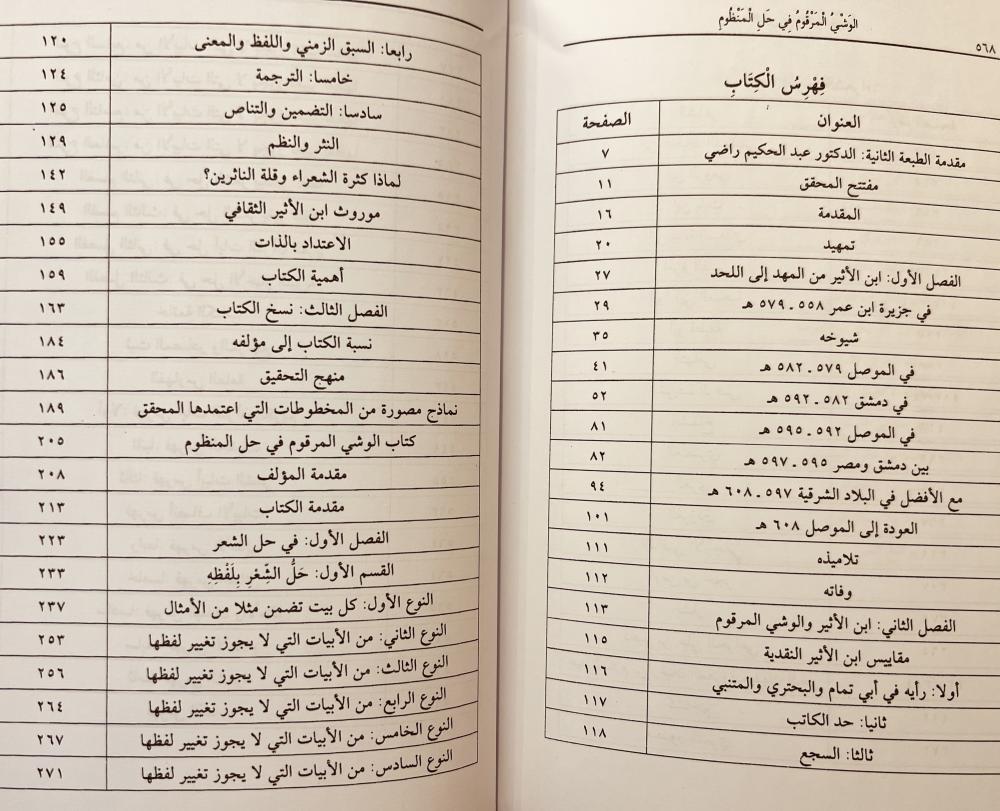 الوَشْيُ الْمَرْقُومُ فِي حَلِ الْمَنْظُومُ
٥٦٨
فِهْرِسُ الْكِتَابِ
العنوان الصفحة
مقدمة الطبعة الثانية: الدكتور عبد الحكيم راضي ٧
مفتتح المحقق ١١
المقدمة ١٦
تمهيد ٢٠
الفصل الأول: ابن الأثير من المهد إلى اللحد ٢٧
في جزيرة ابن عمر ٥٥٨ ـ ٥٧٩ هـ ٢٩
شيوخه ٣٥
في الموصل ٥٧٩ ـ ٥٨٢ هـ ٤١
في دمشق ٥٨٢ ـ ٥٩٢ هـ ٥٢
في الموصل ٥٩٢ ـ ٥٩٥ هـ ٨١
بين دمشق ومصر ٥٩٥ ـ ٥٩٧ هـ ٨٢
مع الأفضل في البلاد الشرقية ٥٩٧ ـ ٦٠٨ هـ ٩٤
العودة إلى الموصل ٦٠٨ هـ ١٠١
تلاميذه ١١١
وفاته ١١٢
الفصل الثاني: ابن الأثير والوشي المرقوم ١١٣
مقاييس ابن الأثير النقدية ١١٥
أولا: رأيه في أبي تمام والبحتري والمتنبي ١١٦
ثانيا: حد الكاتب ١١٧
ثالثا: السجع ١١٨
رابعا: السبق الزمني واللفظ والمعنى ١٢٠
خامسا: الترجمة ١٢٤
سادسا: التضمين والتناص ١٢٥
النثر والنظم ١٢٩
لماذا كثرة الشعراء وقلة الناثرين؟ ١٤٢
موروث ابن الأثير الثقافي ١٤٩
الاعتداد بالذات ١٥٥
أهمية الكتاب ١٥٩
الفصل الثالث: نسخ الكتاب ١٦٣
نسبة الكتاب إلى مؤلفه ١٨٤
منهج التحقيق ١٨٦
نماذج مصورة من المخطوطات التي اعتمدها المحقق ١٨٩
كتاب الوشي المرقوم في حل المنظوم ٢٠٥
مقدمة المؤلف ٢٠٨
مقدمة الكتاب ٢١٣
الفصل الأول: في حل الشعر ٢٢٣
القسم الأول: حَلُّ الشِّعْرِ بِلَفْظِهِ ٢٣٣
النوع الأول: كل بيت تضمن مثلا من الأمثال ٢٣٧
النوع الثاني: من الأبيات التي لا يجوز تغيير لفظها ٢٥٣
النوع الثالث: من الأبيات التي لا يجوز تغيير لفظها ٢٥٦
النوع الرابع: من الأبيات التي لا يجوز تغيير لفظها ٢٦٤
النوع الخامس: من الأبيات التي لا يجوز تغيير لفظها ٢٦٧
النوع السادس: من الأبيات التي لا يجوز تغيير لفظها ٢٧١